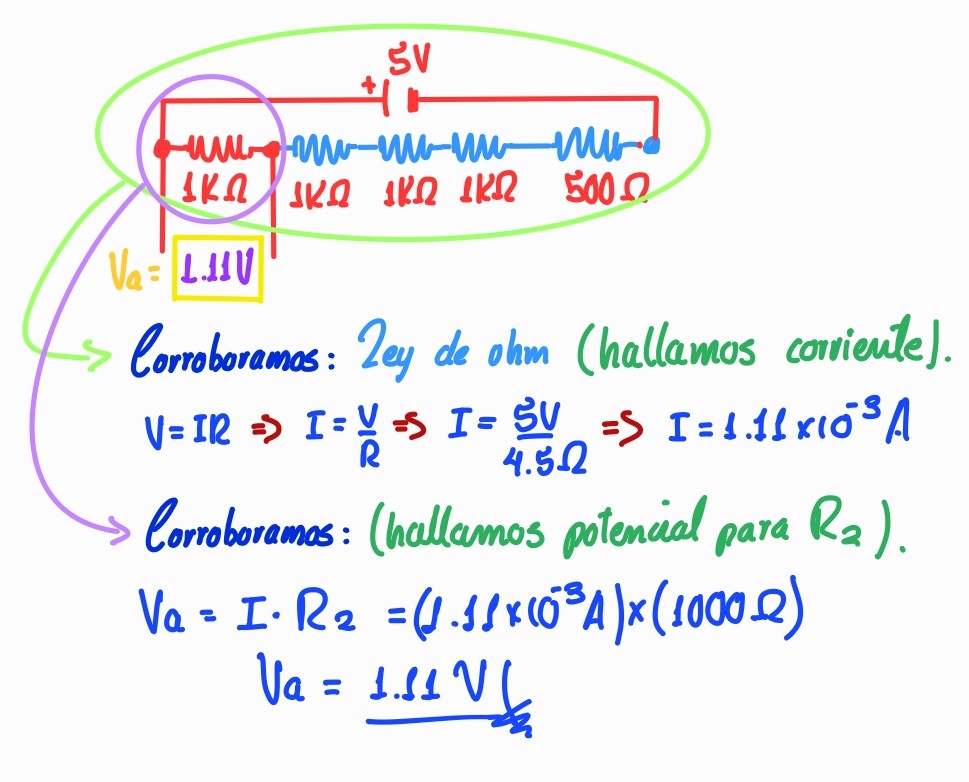 5V
+
1KΩ 1KΩ 1KΩ 1KΩ 500Ω
Va = 1.11V
Corroboramos: Ley de ohm (hallamos corriente).
V = IR ⇒ I = V/R ⇒ I = 5V/4.5Ω ⇒ I = 1.11×10⁻³A
Corroboramos: (hallamos potencial para R₂).
Va = I · R₂ = (1.11×10⁻³A)×(1000Ω)
Va = 1.11 V